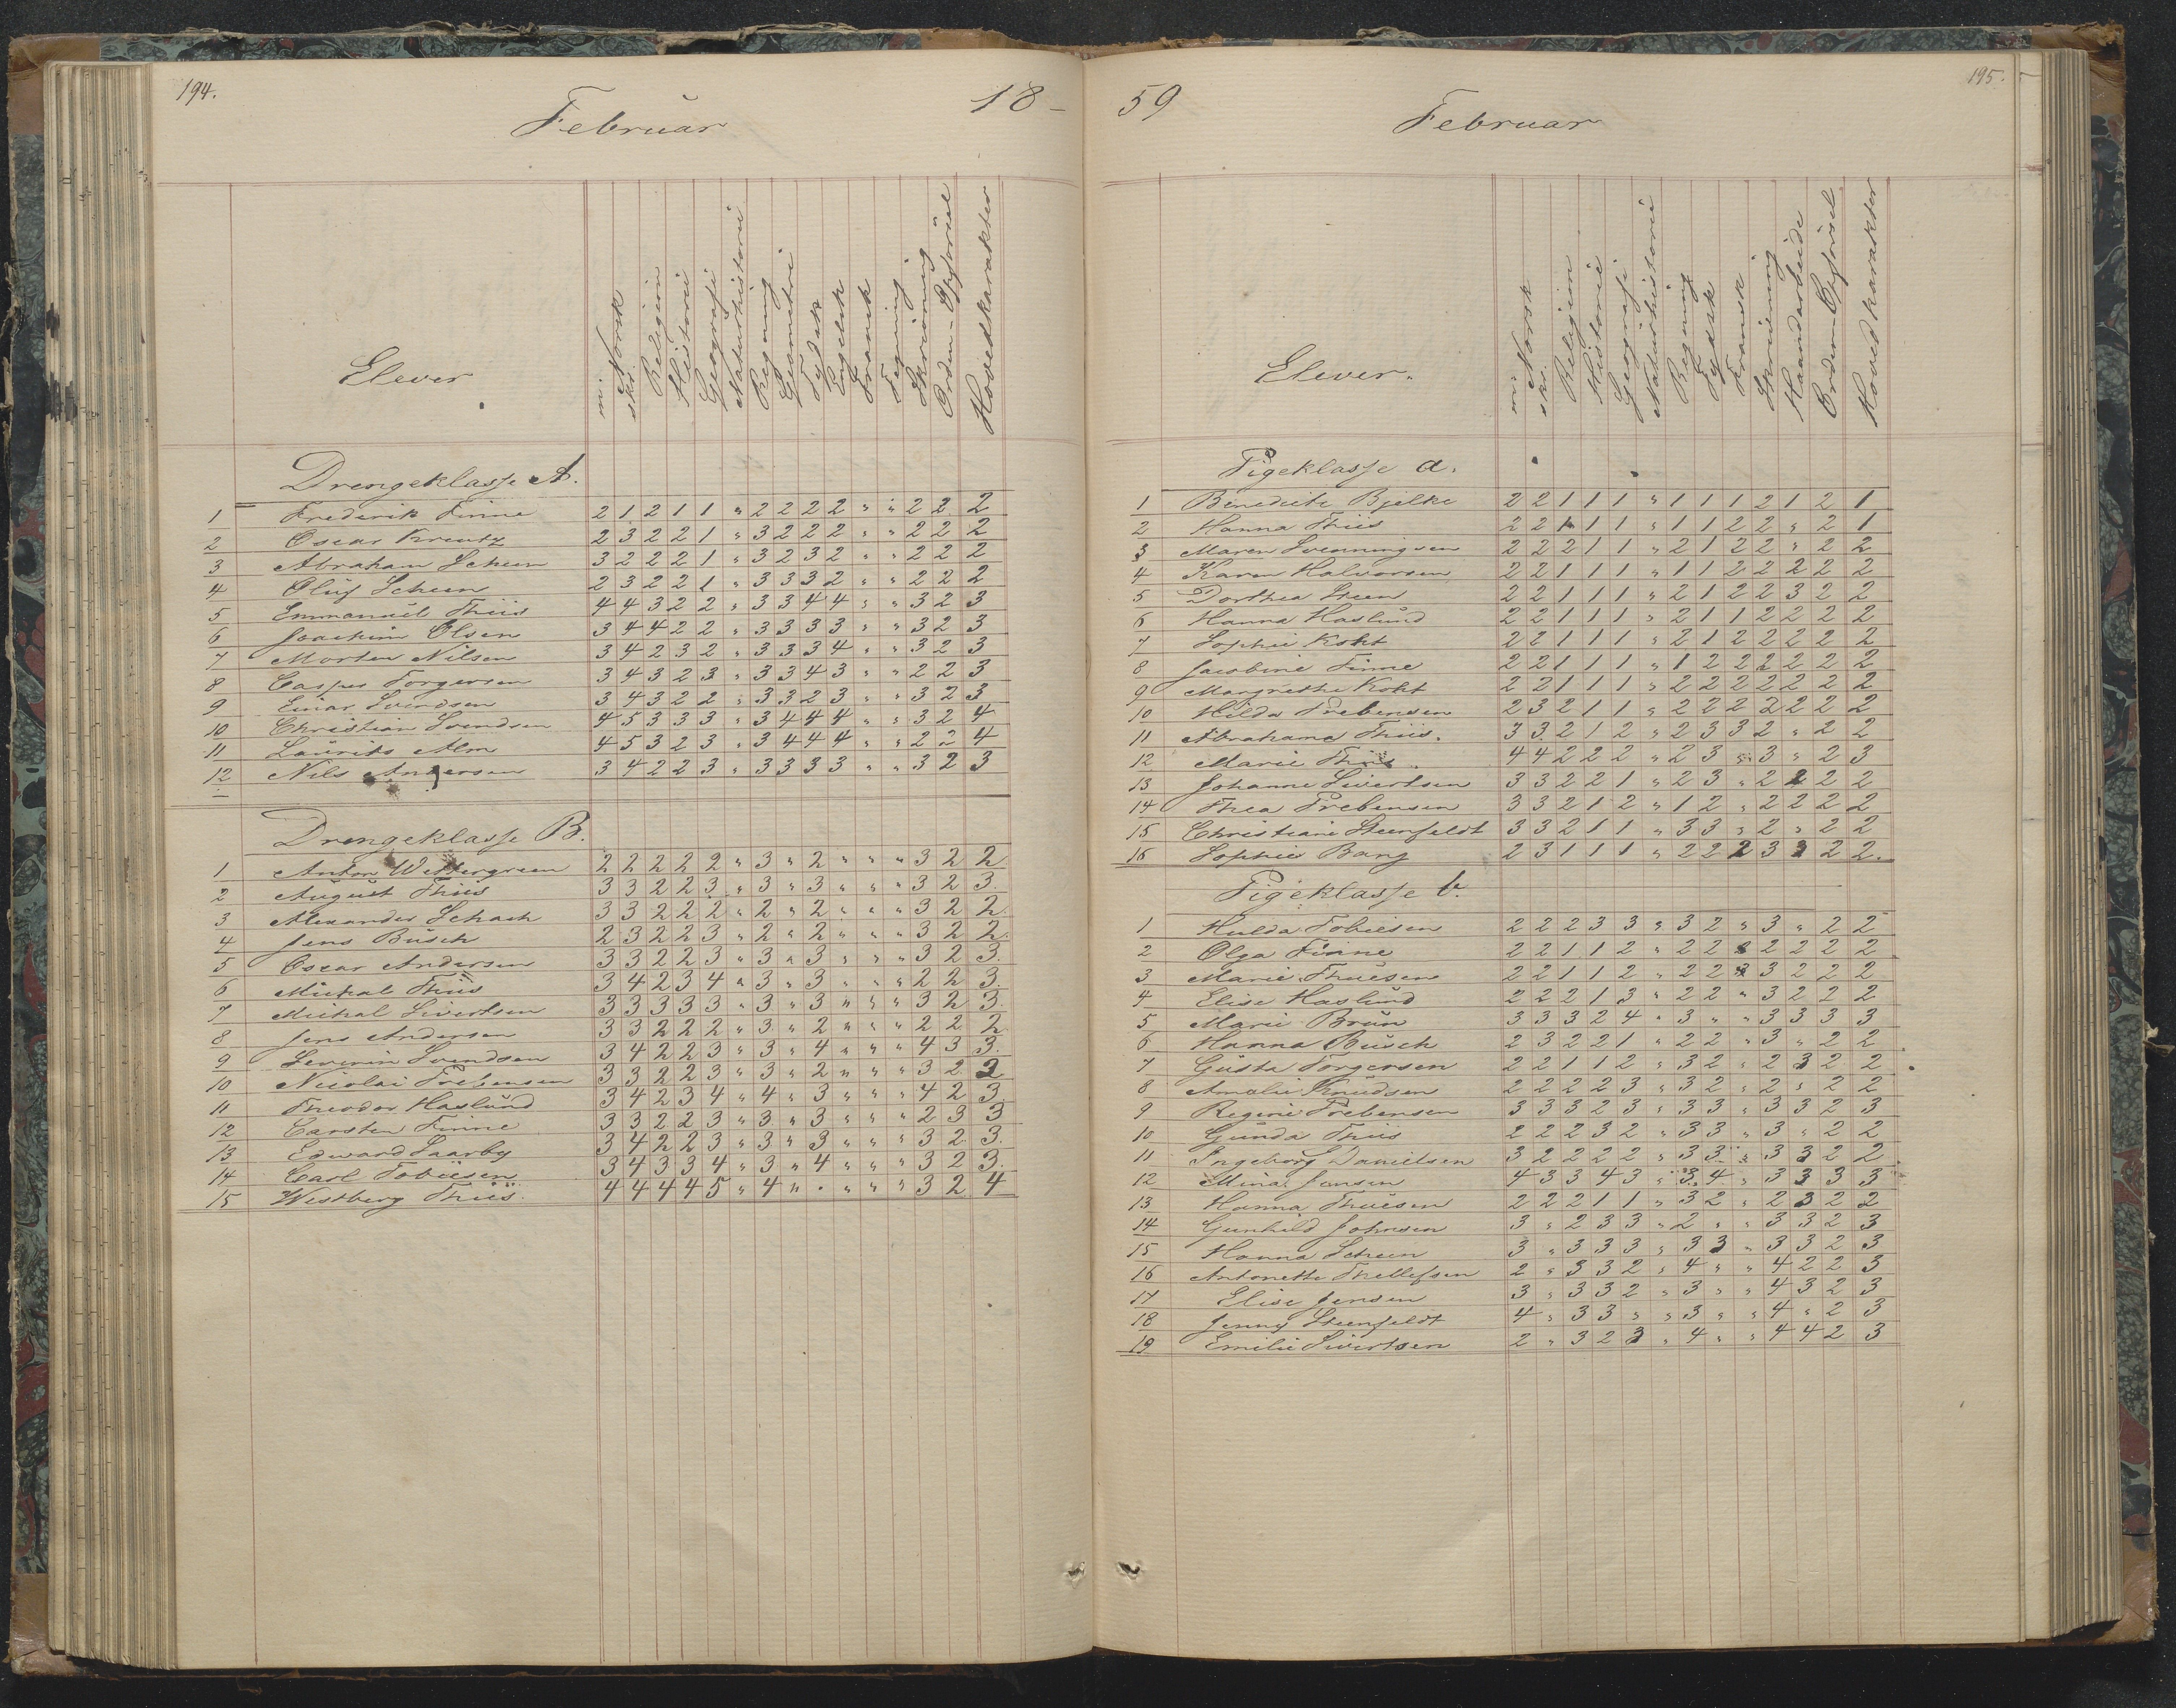 194.
18-
Februar
Elever
m. Norsk
skr.
Religion
Historie
Geografi
Naturhistorie
Regning
Geometri
Tydsk
Engelsk
Fransk
Tegning
Skrivning
Orden-Opførsel
Hovedkarakter
Drengeklasse A.
1 Frederik Finne 2 1 2 1 1 " 2 2 2 2 " " 2 2 2
2 Oscar Kreutz 2 3 2 2 1 " 3 2 2 2 " " 2 2 2
3 Abraham Scheen 3 2 2 2 1 " 3 2 3 2 " " 2 2 2
4 Oluf Scheen 2 3 2 2 1 " 3 3 3 2 " " 2 2 2
5 Emmanuel Thiis 4 4 3 2 2 " 3 3 4 4 " " 3 2 3
6 Joachim Olsen 3 4 4 2 2 " 3 3 3 3 " " 3 2 3
7 Morten Nilsen 3 4 2 3 2 " 3 3 3 4 " " 3 2 3
8 Casper Torgersen 3 4 3 2 3 " 3 3 4 3 " " 2 2 3
9 Einar Svendsen 3 4 3 2 2 " 3 3 2 3 " " 3 2 3
10 Christian Svendsen 4 5 3 3 3 " 3 4 4 4 " " 3 2 4
11 Laurits Alm 4 5 3 2 3 " 3 4 4 4 " " 2 2 4
12 Nils Andersen 3 4 2 2 3 " 3 3 3 3 " " 3 2 3
Drengeklasse B.
1 Anton Wettergreen 2 2 2 2 2 " 3 " 2 " " " 3 2 2
2 August Thiis 3 3 2 2 3 " 3 " 3 " " " 3 2 3.
3 Alexander Schach 3 3 2 2 2 " 2 " 2 " " " 3 2 2
4 Jens Busch 2 3 2 2 3 " 2 " 2 " " " 3 2 2.
5 Oscar Andersen 3 3 2 2 3 " 3 " 3 " " " 3 2 3.
6 Michal Thiis 3 4 2 3 4 " 3 " 3 " " " 2 2 3.
7 Michal Sivertsen 3 3 3 3 3 " 3 " 3 " " " 3 2 3.
8 Jens Andersen 3 3 2 2 2 " 3 " 2 " " " 2 2 2
9 Severin Svendsen 3 4 2 2 3 " 3 " 4 " " " 4 3 3.
10 Nicolai Prebensen 3 3 2 2 3 " 3 " 2 " " " 3 2 2
11 Theodor Haslund 3 4 2 3 4 " 4 " 3 " " " 4 2 3.
12 Carsten Finne 3 3 2 2 3 " 3 " 3 " " " 2 3 3
13 Edward Saarby 3 4 2 2 3 " 3 " 3 " " " 3 2 3.
14 Carl Tobiesen 3 4 3 3 4 " 3 " 4 " " " 3 2 3.
15 Westberg Thiis. 4 4 4 4 5 " 4 " . " " " 3 2 4
195.
59
Februar
Elever.
m. Norsk
skr.
Religion
Historie
Geografi
Naturhistorie
Regning
Tydsk
Fransk
Skrivning
Haandarbeide
Orden-Opførsel
Hovedkarakter
Pigeklasse a.
1 Benedicte Bjelke 2 2 1 1 1 " 1 1 1 2 1 2 1
2 Hanna Thiis 2 2 1 1 1 " 1 1 2 2 " 2 1
3 Maren Svenningsen 2 2 2 1 1 " 2 1 2 2 " 2 2
4 Karen Halvorsen 2 2 1 1 1 " 1 1 2 2 2 2 2
5 Dorthea Steen 2 2 1 1 1 " 2 1 2 2 3 2 2
6 Hanna Haslund 2 2 1 1 1 " 2 1 1 2 2 2 2
7 Sophie Koht 2 2 1 1 1 " 2 1 2 2 2 2 2
8 Jacobine Finne 2 2 1 1 1 " 1 2 2 2 2 2 2
9 Margrethe Koht 2 2 1 1 1 " 2 2 2 2 2 2 2
10 Hilda Prebensen 2 3 2 1 1 " 2 2 2 2 2 2 2
11 Abrahame Thiis. 3 3 2 1 2 " 2 3 3 2 " 2 2
12 Marie Thiis 4 4 2 2 2 " 2 3 " 3 " 2 3
13 Johanne Sivertsen 3 3 2 2 1 " 2 3 " 2 2 2 2
14 Thea Prebensen 3 3 2 1 2 " 1 2 " 2 2 2 2
15 Christiane Steenfeldt 3 3 2 1 1 " 3 3 " 2 " 2 2
16 Sophie Bang 2 3 1 1 1 " 2 2 2 3 3 2 2.
Pigeklasse b.
1 Hulda Tobiesen 2 2 2 3 3 " 3 2 " 3 " 2 2
2 Olga Finne 2 2 1 1 2 " 2 2 " 2 2 2 2
3 Marie Thuesen 2 2 1 1 2 " 2 2 " 3 2 2 2
4 Elise Haslund 2 2 2 1 3 " 2 2 " 3 2 2 2
5 Marie Brun 3 3 3 2 4 " 3 " " 3 3 3 3
6 Hanna Busch 2 3 2 2 1 " 2 2 " 3 " 2 2
7 Gusta Torgersen 2 2 1 1 2 " 3 2 " 2 3 2 2
8 Amalie Knudsen 2 2 2 2 3 " 3 2 " 2 " 2 2
9 Regine Prebensen 3 3 3 2 3 " 3 3 " 3 3 2 3
10 Gunda Thiis 2 2 2 3 2 " 3 3 " 3 " 2 2
11 Ingeborg Danielsen 3 2 2 2 2 " 3 3 " 3 3 2 2
12 Mina Jansen 4 3 3 4 3 " 3 4 " 3 3 3 3
13 Hanna Thuesen 2 2 2 1 1 " 3 2 " 2 3 2 2
14 Gunhild Johnsen 3 " 2 3 3 " 2 " " 3 3 2 3
15 Hanna Scheen 3 " 3 3 3 " 3 3 " 3 3 2 3
16 Antonette Thellefsen 2 " 3 3 2 " 4 " " 4 2 2 3
17 Elise Jensen 3 " 3 3 2 " 3 " " 4 3 2 3
18 Jenny Steenfeldt 4 " 3 3 " " 3 " " 4 " 2 3
19 Emilie Sivertsen 2 " 3 2 3 " 4 " " 4 4 2 3